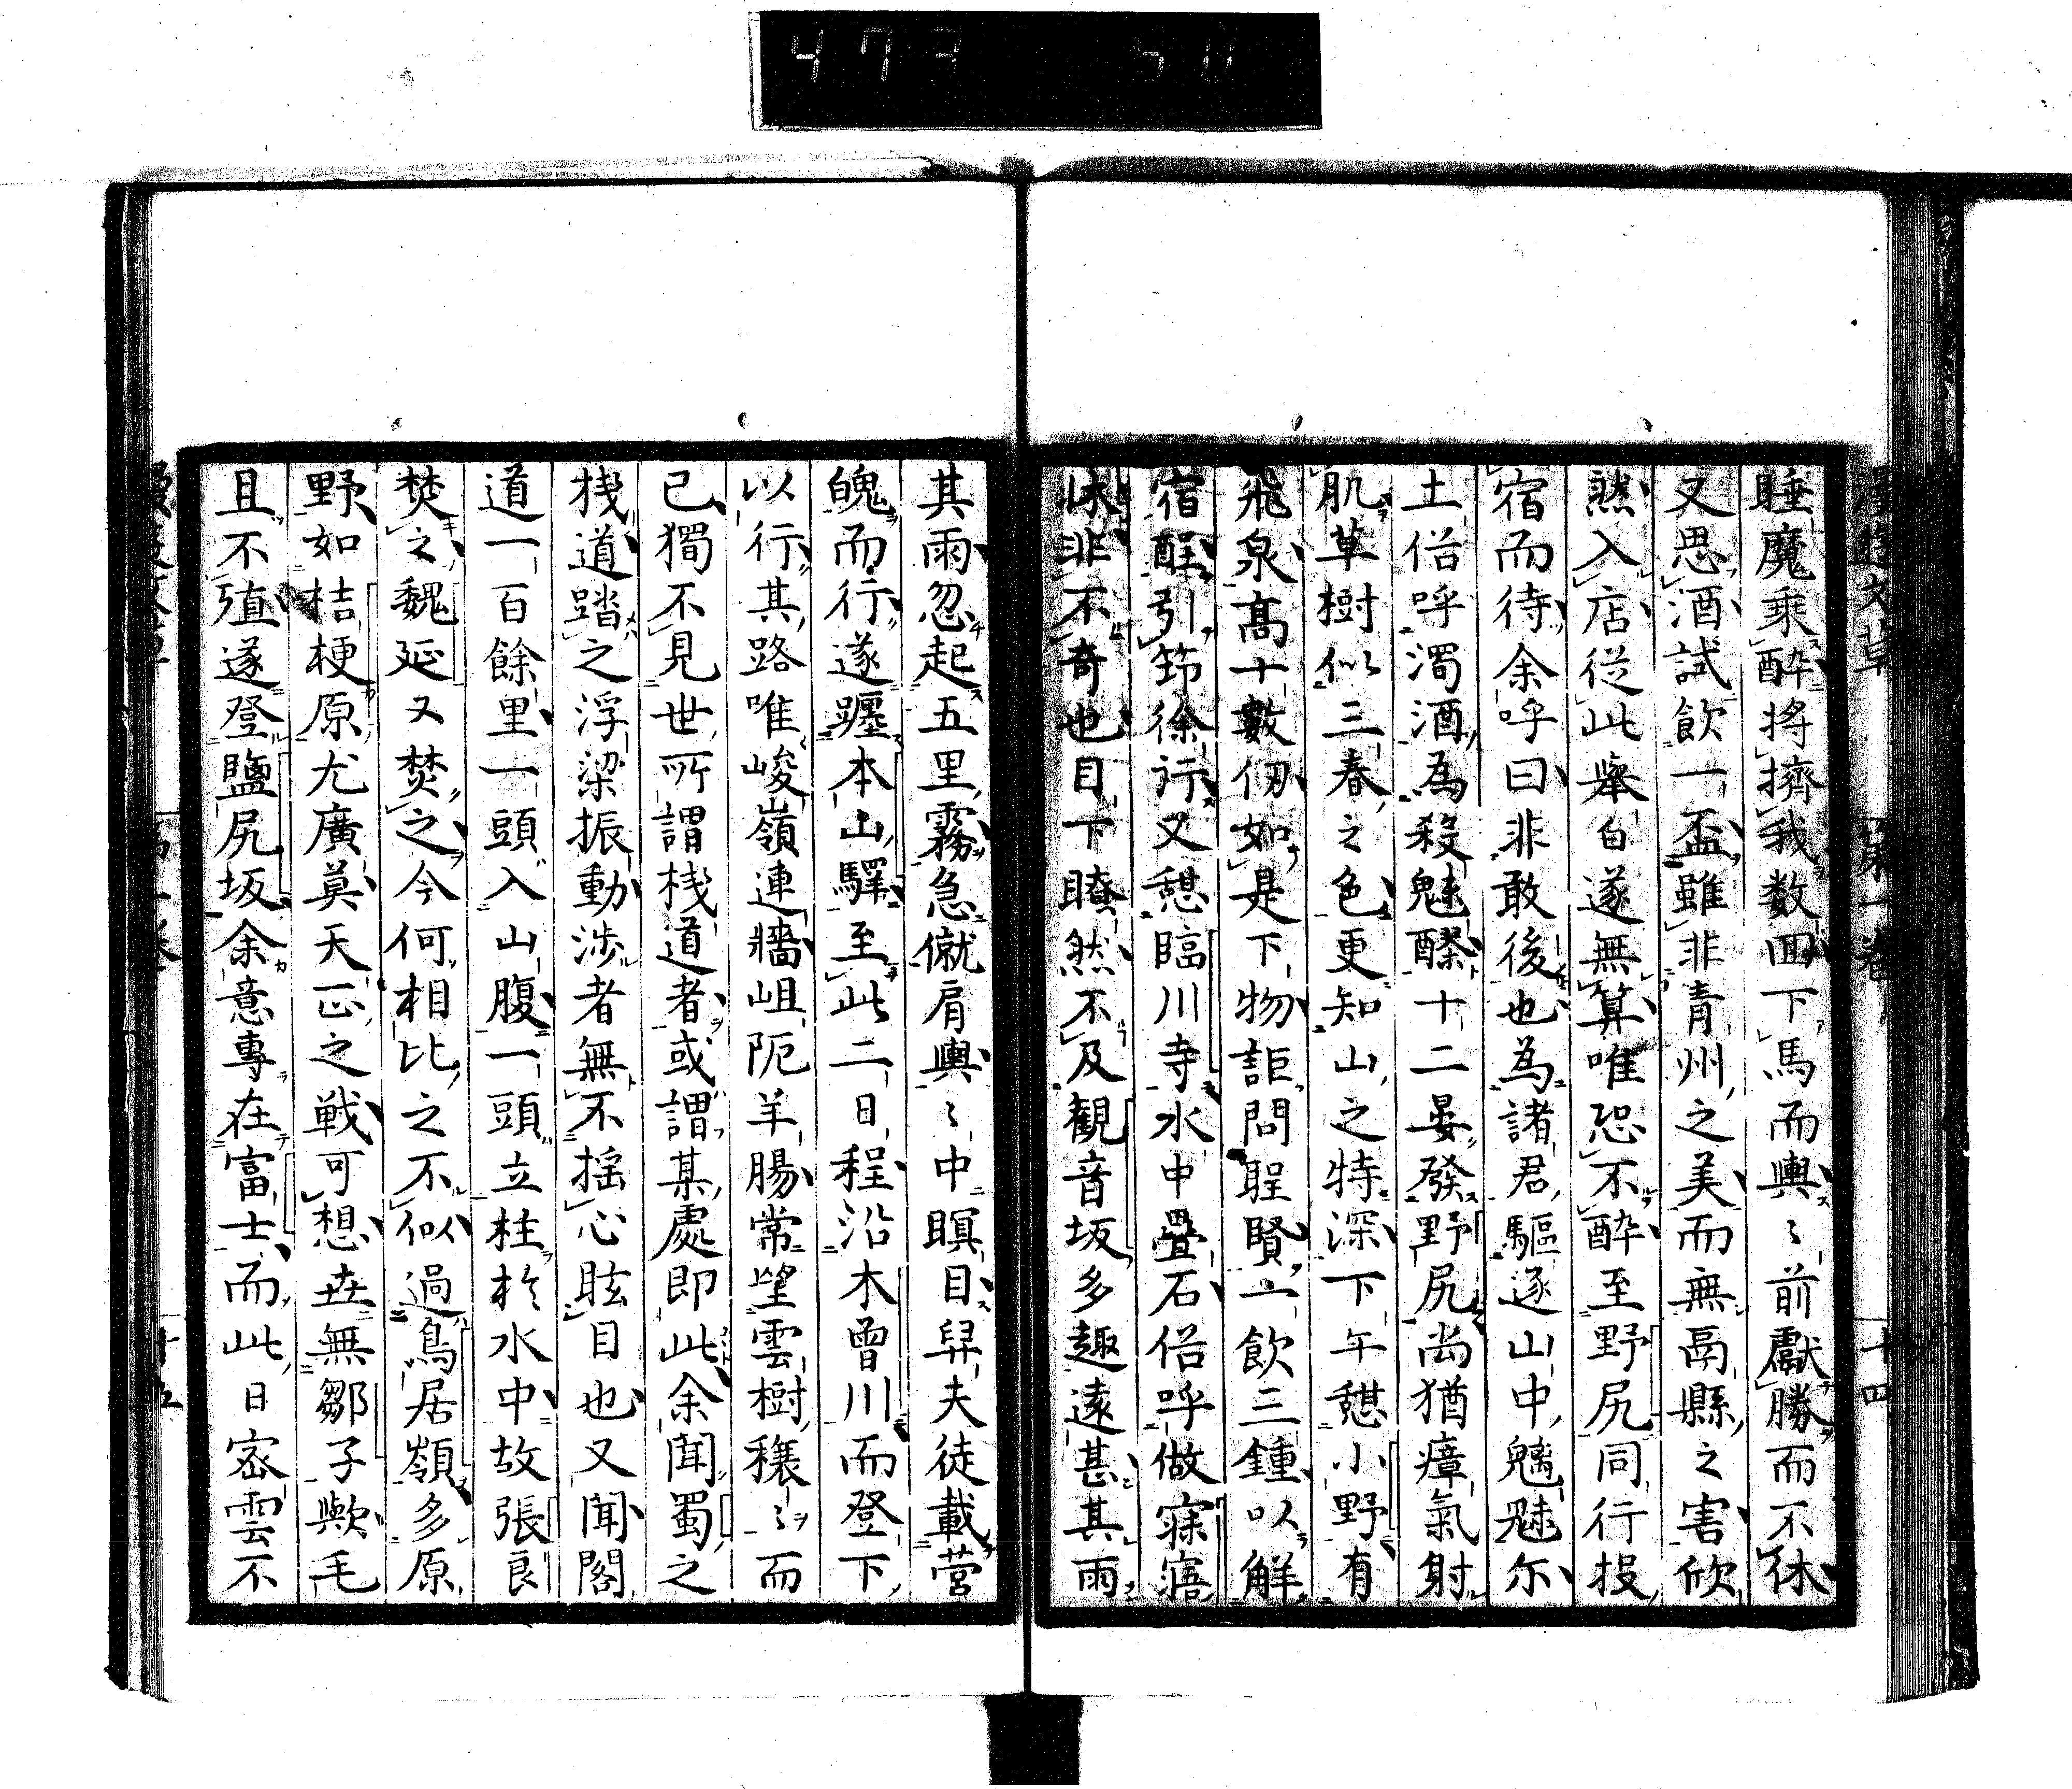 睡魔乗酔将擠我数囬下馬而輿〻前獻勝而不休
又思酒試飲一盃雖非青州之美而無鬲縣之害欣
然入店従此舉白遂無算唯恐不酔至野尻同行投
宿而待余呼曰非敢後也為諸君驅逐山中魑魅尓
土俗呼濁酒為殺魅醪十二晏發野尻尚猶瘴氣射
肌草樹似三春之色更知山之特深下午憇小野有
飛泉高十數仭如是下物詎問聖賢一飲三鍾以解
宿酲引筇徐行又憇臨川寺水中疊石俗呼做寐寤
牀非不奇也目下瞭然不及觀音坂多趣遠甚其雨
其雨忽起五里霧急僦肩輿〻中瞑目舁夫徒載営
魄而行遂躔本山驛至此二日程沿木曾川而登下
以行其路唯峻嶺連牆岨阨羊腸常望雲樹穣〻而
已獨不見世所謂棧道者或謂某處即此余聞蜀之
棧道踏之浮梁振動渉者無不揺心眩目也又聞閣
道一百餘里一頭入山腹一頭立柱於水中故張良
焚之魏延又焚之今何相比之不似過鳥居嶺多原
野如桔梗原尤廣莫天正之戦可想壵無鄒子歟毛
且不殖遂登鹽尻坂余意専在富士而此日密雲不
第一巻
十四